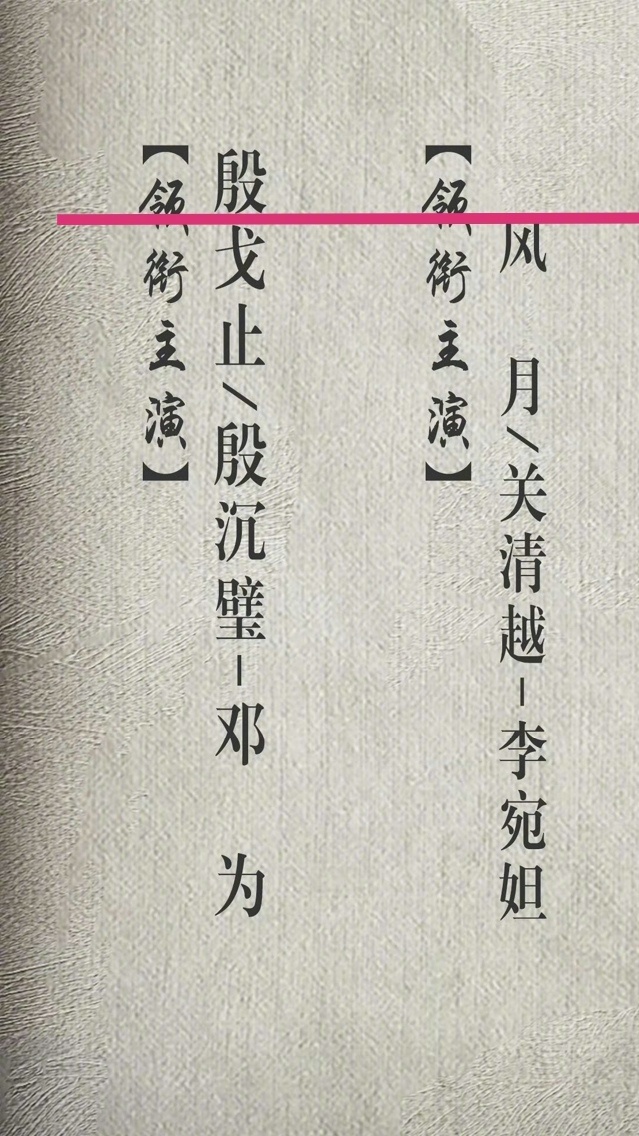 风 月/关清越-李宛妲
【领衔主演】
殷戈止/殷沉璧-邓 为
【领衔主演】